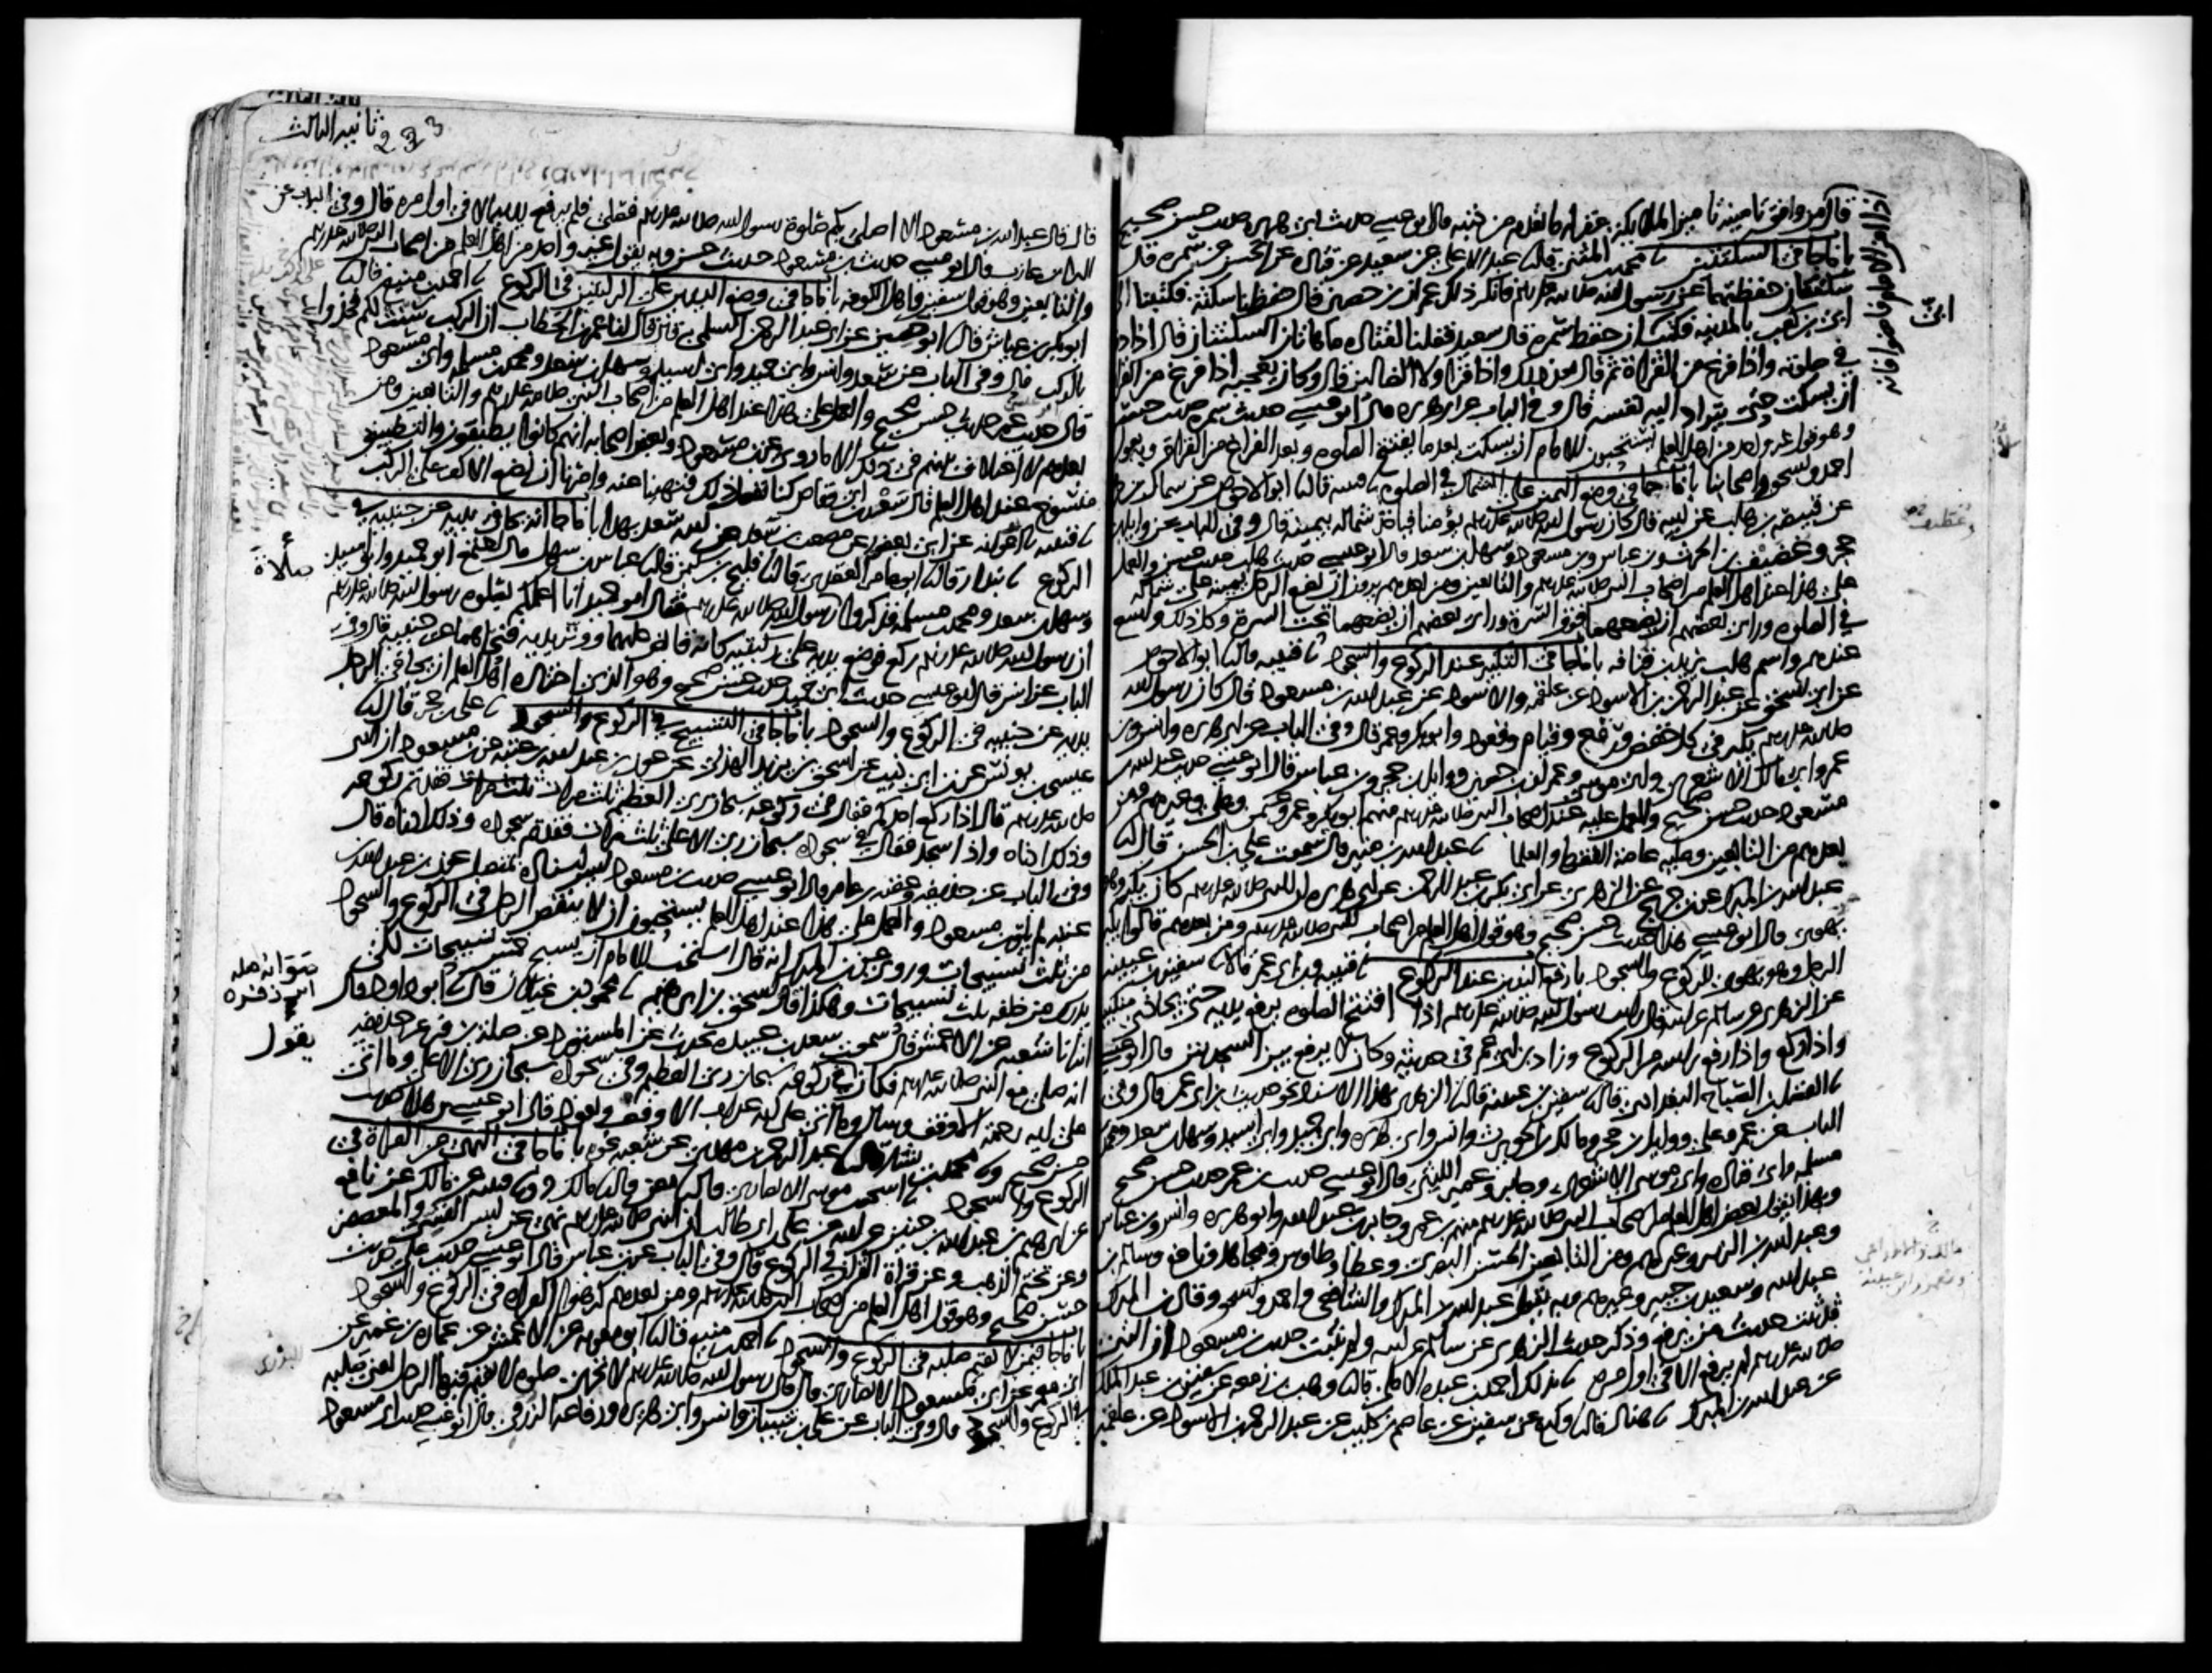 قال من وافق تامينه تامين الملائكة غفر له ما تقدم من ذنبه قال ابو عيسى حديث ابي هريرة حديث حسن صحيح
باب ما جا في السكتتين محمد بن المثنى قال نا عبد الاعلى عن سعيد عن قتادة عن الحسن عن سمرة قال
سكتتان حفظتهما عن رسول الله صلى الله عليه وسلم فانكر ذلك عمران بن حصين قال حفظنا سكتة فكتبنا الى
ابي بن كعب بالمدينة فكتب ان حفظ سمرة قال سعيد فقلنا لقتادة ما هاتان السكتتان قال اذا دخل
في صلوته واذا فرغ من القراة ثم قال بعد ذلك واذا قرا ولا الضالين قال وكان يعجبه اذا فرغ من القراة
ان يسكت حتى يتراد اليه نفسه قال وفي الباب عن ابي هريرة قال ابو عيسى حديث سمرة حديث حسن
وهو قول غير واحد من اهل العلم يستحبون للامام ان يسكت بعد ما يفتتح الصلوة وبعد الفراغ من القراة وبه يقول
احمد واسحق واصحابنا باب ما جا في وضع اليمين على الشمال في الصلوة قتيبة قال نا ابو الاحوص عن سماك بن حرب
عن قبيصة بن هلب عن ابيه قال كان رسول الله صلى الله عليه وسلم يؤمنا فياخذ شماله بيمينه قال وفي الباب عن وايل بن
حجر وغضيف بن الحرث وابن عباس وابن مسعود وسهل بن سعد قال ابو عيسى حديث هلب حديث حسن والعمل
على هذا عند اهل العلم من اصحاب النبي صلى الله عليه وسلم والتابعين ومن بعدهم يرون ان يضع الرجل يمينه على شماله
في الصلوة وراى بعضهم ان يضعهما فوق السرة وراى بعضهم ان يضعهما تحت السرة وكل ذلك واسع
عندهم واسم هلب يزيد بن قنافة باب ما جا في التكبير عند الركوع والسجود قتيبة قال نا ابو الاحوص
عن ابي اسحق عن عبد الرحمن بن الاسود عن علقمة والاسود عن عبد الله بن مسعود قال كان رسول الله
صلى الله عليه وسلم يكبر في كل خفض ورفع وقيام وقعود وابو بكر وعمر قال وفي الباب عن ابي هريرة وانس وابن
عمر وابي مالك الاشعري وابي موسى وعمران بن حصين ووايل بن حجر وابن عباس قال ابو عيسى حديث عبد الله بن
مسعود حديث حسن صحيح والعمل عليه عند اصحاب النبي صلى الله عليه وسلم منهم ابو بكر وعمر وعثمن وعلي وغيرهم ومن
بعدهم من التابعين وعليه عامة الفقها والعلما عبد الله بن منير قال سمعت علي بن الحسن قال نا
عبد الله بن المبارك عن ابن جريج عن الزهري عن ابي بكر بن عبد الرحمن عن ابي هريرة ان النبي صلى الله عليه وسلم كان يكبر وهو
يهوي قال ابو عيسى هذا حديث حسن صحيح وهو قول اهل العلم من اصحاب النبي صلى الله عليه وسلم ومن بعدهم قالوا يكبر
الرجل وهو يهوي للركوع والسجود باب رفع اليدين عند الركوع قتيبة وابن ابي عمر قالا نا سفين بن عيينة
عن الزهري عن سالم عن ابيه قال رايت رسول الله صلى الله عليه وسلم اذا افتتح الصلوة يرفع يديه حتى يحاذي منكبيه
واذا ركع واذا رفع راسه من الركوع وزاد ابن ابي عمر في حديثه وكان لا يرفع بين السجدتين قال ابو عيسى
الفضل بن الصباح البغدادي قال نا سفين بن عيينة قال نا الزهري بهذا الاسناد نحو حديث ابن ابي عمر قال وفي
الباب عن عمر وعلي ووايل بن حجر ومالك بن الحويرث وانس وابي هريرة وابي حميد وابي اسيد وسهل بن سعد ومحمد بن
مسلمة وابي قتادة وابي موسى الاشعري وجابر وعمير الليثي قال ابو عيسى حديث ابن عمر حديث حسن صحيح
وبهذا يقول بعض اهل العلم من اصحاب النبي صلى الله عليه وسلم منهم ابن عمر وجابر بن عبد الله وابو هريرة وانس وابن عباس
وعبد الله بن الزبير وغيرهم ومن التابعين الحسن البصري وعطا وطاوس ومجاهد ونافع وسالم بن
عبد الله وسعيد بن جبير وغيرهم وبه يقول عبد الله بن المبارك والشافعي واحمد واسحق وقال ابن المبارك
قد ثبت حديث من يرفع وذكر حديث الزهري عن سالم عن ابيه ولم يثبت حديث ابن مسعود ان النبي
صلى الله عليه وسلم لم يرفع الا في اول مرة بذلك احمد بن عبدة الاملي قال نا وهب بن زمعة عن سفين بن عبد الملك
عن عبد الله بن المبارك هناد قال نا وكيع عن سفين عن عاصم بن كليب عن عبد الرحمن بن الاسود عن علقمة
اذا امن الامام فامنوا فانه
ابي
ثاني الثالث
233
قال قال عبد الله بن مسعود الا اصلي بكم صلوة رسول الله صلى الله عليه وسلم فصلى فلم يرفع يديه الا في اول مرة قال وفي الباب عن
البراء بن عازب قال ابو عيسى حديث ابن مسعود حديث حسن وبه يقول غير واحد من اهل العلم من اصحاب النبي صلى الله عليه وسلم
والتابعين وهو قول سفين واهل الكوفة باب ما جا في وضع اليدين على الركبتين في الركوع احمد بن منيع قال نا
ابو بكر بن عياش قال نا ابو حصين عن ابي عبد الرحمن السلمي قال قال لنا عمر بن الخطاب ان الركب سنت لكم فخذوا
بالركب قال وفي الباب عن سعد وانس وابي حميد وابي اسيد وسهل بن سعد ومحمد بن مسلمة وابي مسعود
قال حديث عمر حديث حسن صحيح والعمل على هذا عند اهل العلم من اصحاب النبي صلى الله عليه وسلم والتابعين ومن
بعدهم لا اختلاف بينهم في ذلك الا ما روي عن ابن مسعود وبعض اصحابه انهم كانوا يطبقون والتطبيق
منسوخ عند اهل العلم قال سعد بن ابي وقاص كنا نفعل ذلك فنهينا عنه وامرنا ان نضع الاكف على الركب
قتيبة نا ابو عوانة عن ابي يعفور عن مصعب بن سعد عن ابيه سعد بهذا باب ما جا انه يجافي يديه عن جنبيه في
الركوع بندار قال نا ابو عامر العقدي قال نا فليح بن سليمن قال نا عباس بن سهل قال اجتمع ابو حميد وابو اسيد
وسهل بن سعد ومحمد بن مسلمة فذكروا صلاة رسول الله صلى الله عليه وسلم فقال ابو حميد انا اعلمكم بصلوة رسول الله صلى الله عليه وسلم
ان رسول الله صلى الله عليه وسلم ركع فوضع يديه على ركبتيه كانه قابض عليهما ووتر يديه فنحاهما عن جنبيه قال وفي
الباب عن انس قال ابو عيسى حديث ابي حميد حديث حسن صحيح وهو الذي اختاره اهل العلم ان يجافي الرجل
يديه عن جنبيه في الركوع والسجود باب ما جا في التسبيح في الركوع والسجود علي بن حجر قال نا
عيسى بن يونس عن ابن ابي ذيب عن اسحق بن يزيد الهذلي عن عون بن عبد الله بن عتبة عن ابن مسعود ان النبي
صلى الله عليه وسلم قال اذا ركع احدكم فقال في ركوعه سبحان ربي العظيم ثلث مرات فقد تم ركوعه
وذلك ادناه واذا سجد فقال في سجوده سبحان ربي الاعلى ثلث مرات فقد تم سجوده وذلك ادناه قال
وفي الباب عن حذيفة وعقبة بن عامر قال ابو عيسى حديث ابن مسعود ليس اسناده بمتصل عون بن عبد الله بن
عتبة لم يلق ابن مسعود والعمل على هذا عند اهل العلم يستحبون ان لا ينقص الرجل في الركوع والسجود
من ثلث تسبيحات وروي عن ابن المبارك انه قال استحب للامام ان يسبح خمس تسبيحات لكي
يدرك من خلفه ثلث تسبيحات وهكذا قال اسحق بن ابرهيم محمود بن غيلان قال نا ابو داود قال
انبانا شعبة عن الاعمش قال سمعت سعد بن عبيدة يحدث عن المستورد عن صلة بن زفر عن حذيفة
انه صلى مع النبي صلى الله عليه وسلم فكان في ركوعه سبحان ربي العظيم وفي سجوده سبحان ربي الاعلى وما اتى
على اية رحمة الا وقف وسال وما اتى على اية عذاب الا وقف وتعوذ قال ابو عيسى هذا حديث
حسن صحيح ونا محمد بن بشار نا عبد الرحمن بن مهدي عن شعبة نحوه باب ما جا في النهي عن القراة في
الركوع والسجود اسحق بن موسى الانصاري قال نا معن قال نا مالك ونا قتيبة عن مالك عن نافع
عن ابرهيم بن عبد الله بن حنين عن ابيه عن علي بن ابي طالب ان النبي صلى الله عليه وسلم نهى عن لبس القسي والمعصفر
وعن تختم الذهب وعن قراة القران في الركوع قال وفي الباب عن ابن عباس قال ابو عيسى حديث علي حديث
حسن صحيح وهو قول اهل العلم من اصحاب النبي صلى الله عليه وسلم ومن بعدهم كرهوا القراة في الركوع والسجود
باب ما جا فيمن لا يقيم صلبه في الركوع والسجود احمد بن منيع قال نا ابو معوية عن الاعمش عن عمارة بن عمير عن
ابي معمر عن ابي مسعود الانصاري قال قال رسول الله صلى الله عليه وسلم لا تجزي صلوة لا يقيم فيها الرجل يعني صلبه
في الركوع والسجود قال وفي الباب عن علي بن شيبان وانس وابي هريرة ورفاعة الزرقي قال ابو عيسى حديث ابي مسعود
صلاة
يقول